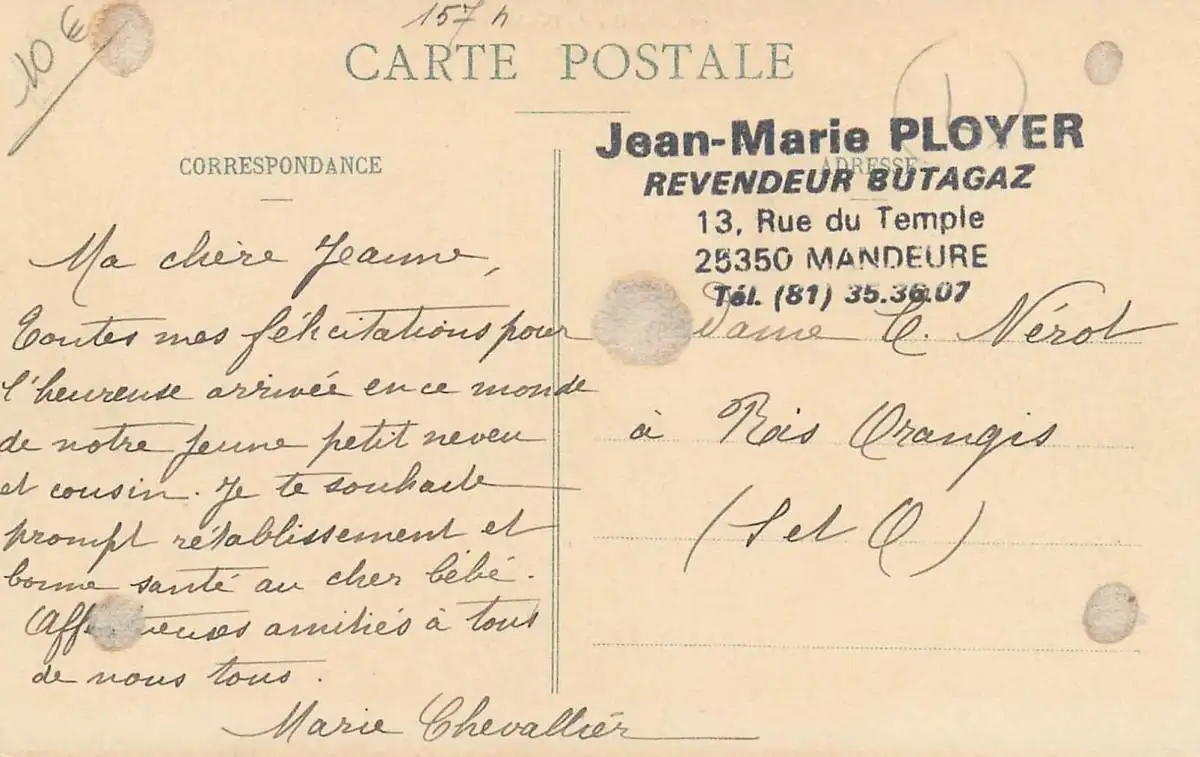 157 h
10 €
CARTE POSTALE
CORRESPONDANCE
ADRESSE
Jean-Marie PLOYER
REVENDEUR BUTAGAZ
13, Rue du Temple
25350 MANDEURE
Tél. (81) 35.36.07
Ma chère Jeanne,
Toutes mes félicitations pour
l'heureuse arrivée en ce monde
de notre jeune petit neveu
et cousin. Je te souhaite
prompt rétablissement et
bonne santé au cher bébé.
Aff euses amitiés à tous
de nous tous.
Marie Chevallier
dame C. Nérot
à Ris Orangis
(S et O)